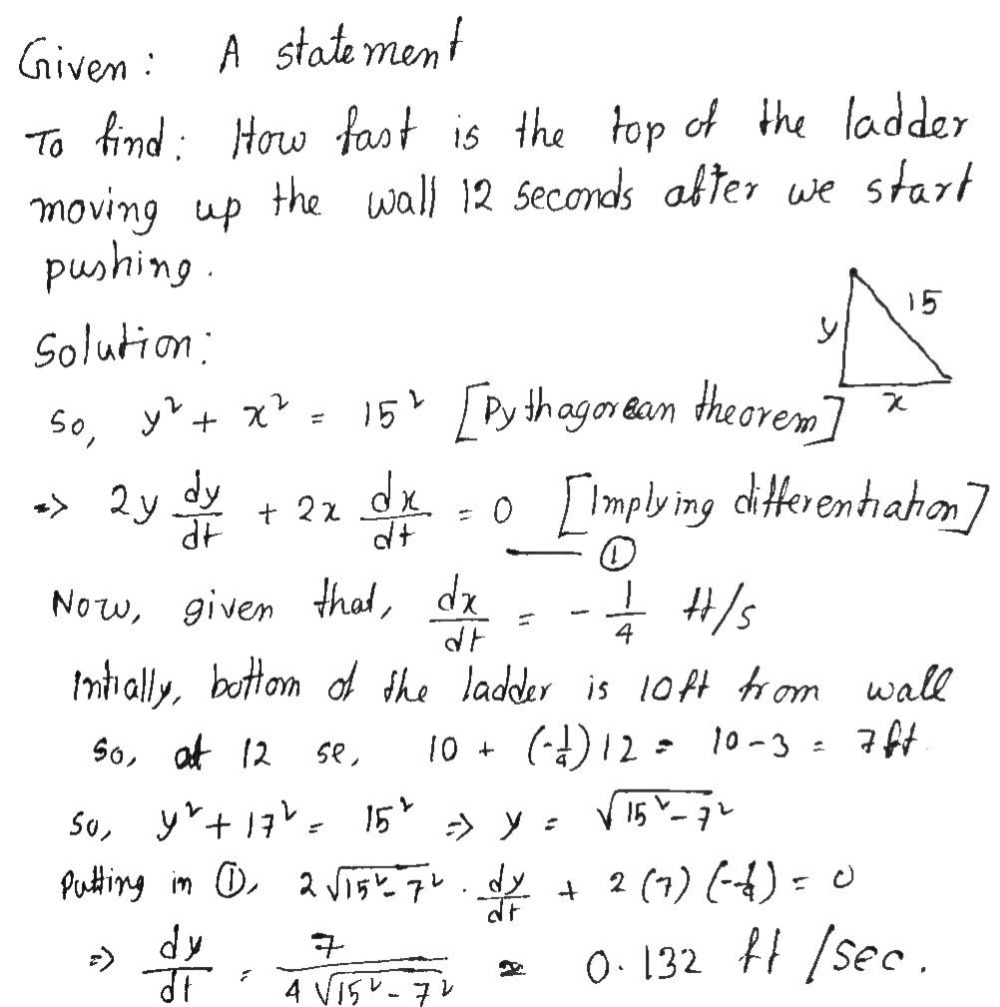 Given : A statement
To find : How fast is the top of the ladder
moving up the wall 12 seconds after we start
pushing .
Solution :
15
y
x
So, y² + x² = 15² [Pythagorean theorem]
=> 2y dy/dt + 2x dx/dt = 0 [Implying differentiation]
①
Now, given that, dx/dt = - 1/4 ft/s
Intially, bottom of the ladder is 10ft from wall
So, at 12 se, 10 + (-1/4) 12 = 10-3 = 7ft.
So, y² + 17² = 15² => y = √15²-7²
Putting in ①, 2 √15²-7² . dy/dt + 2 (7) (-1/4) = 0
=> dy/dt = 7/4√15²-7² ≈ 0.132 ft /sec.